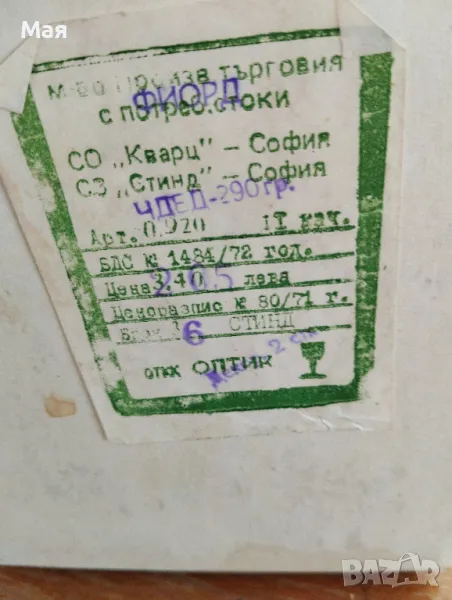 Мая
М-во Произв. търговия
ФИОРД
с потреб. стоки
СО „Кварц" – София
СЗ „Стинд" – София
ЧДЕД-290гр.
Арт. 0,920 II кач.
БДС к 1484/72 год.
Цена 2,40 лева
2,05
Ценоразпис к 80/71 г.
6 СТИНД
ОПКК ОПТИК
2
BAZAR